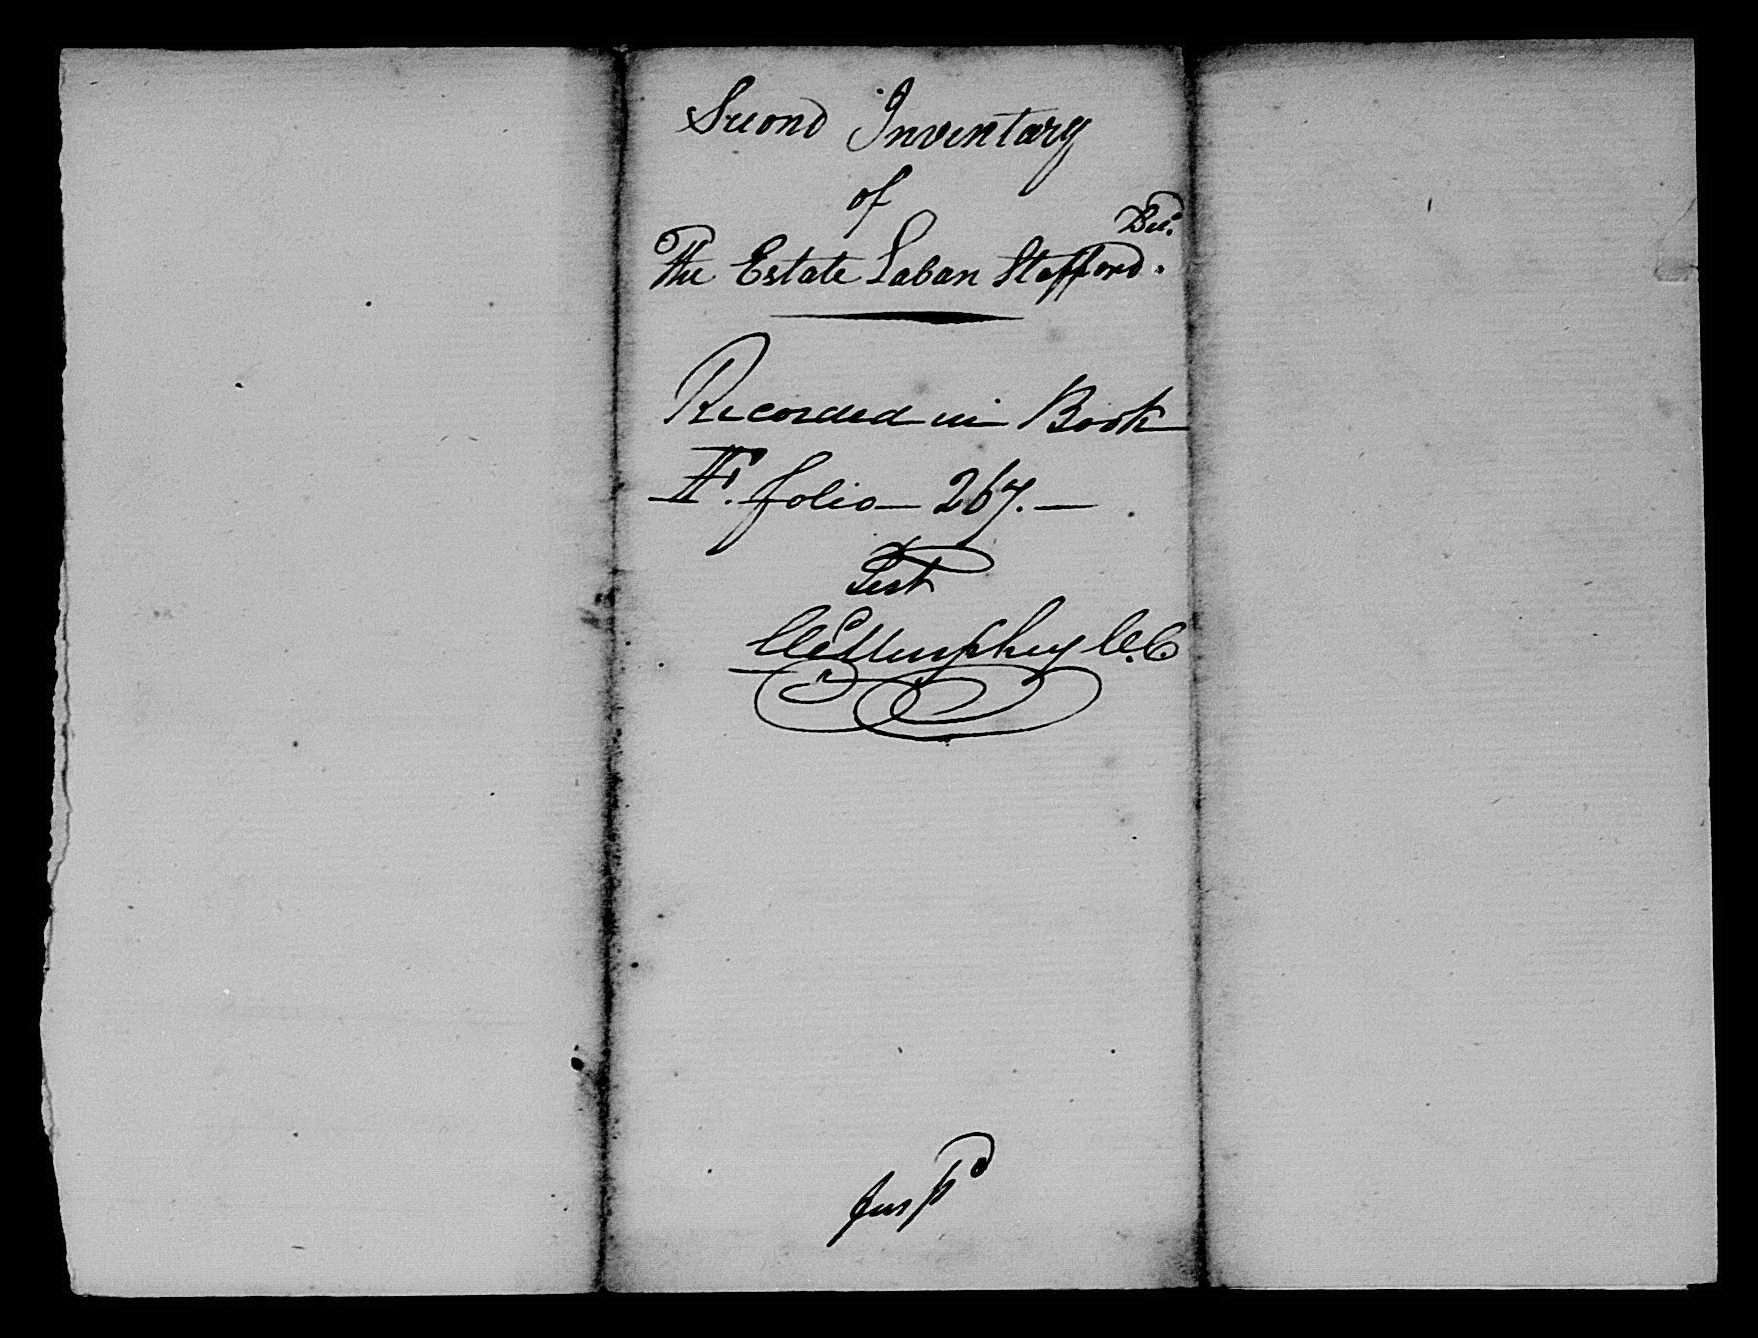 Second Inventary
of
The Estate Laban Stafford Dec.
Recorded in Book
F. folio 267.
Test
Murphey C.C.